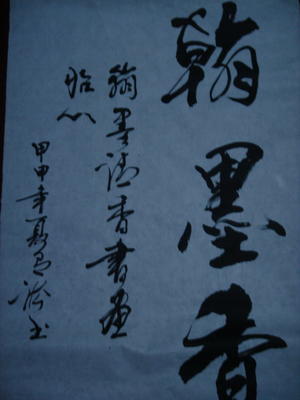 翰墨香
翰墨清香書畫
怡心
甲申年夏书